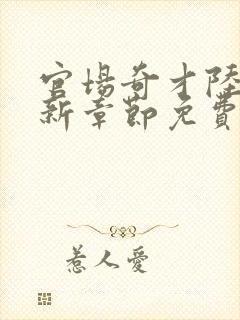 官场奇才陆
新章节免费
惹人爱